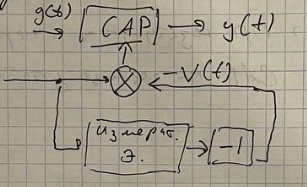 g(t) САР y(t)
-V(t)
измерит.
Э.
-1